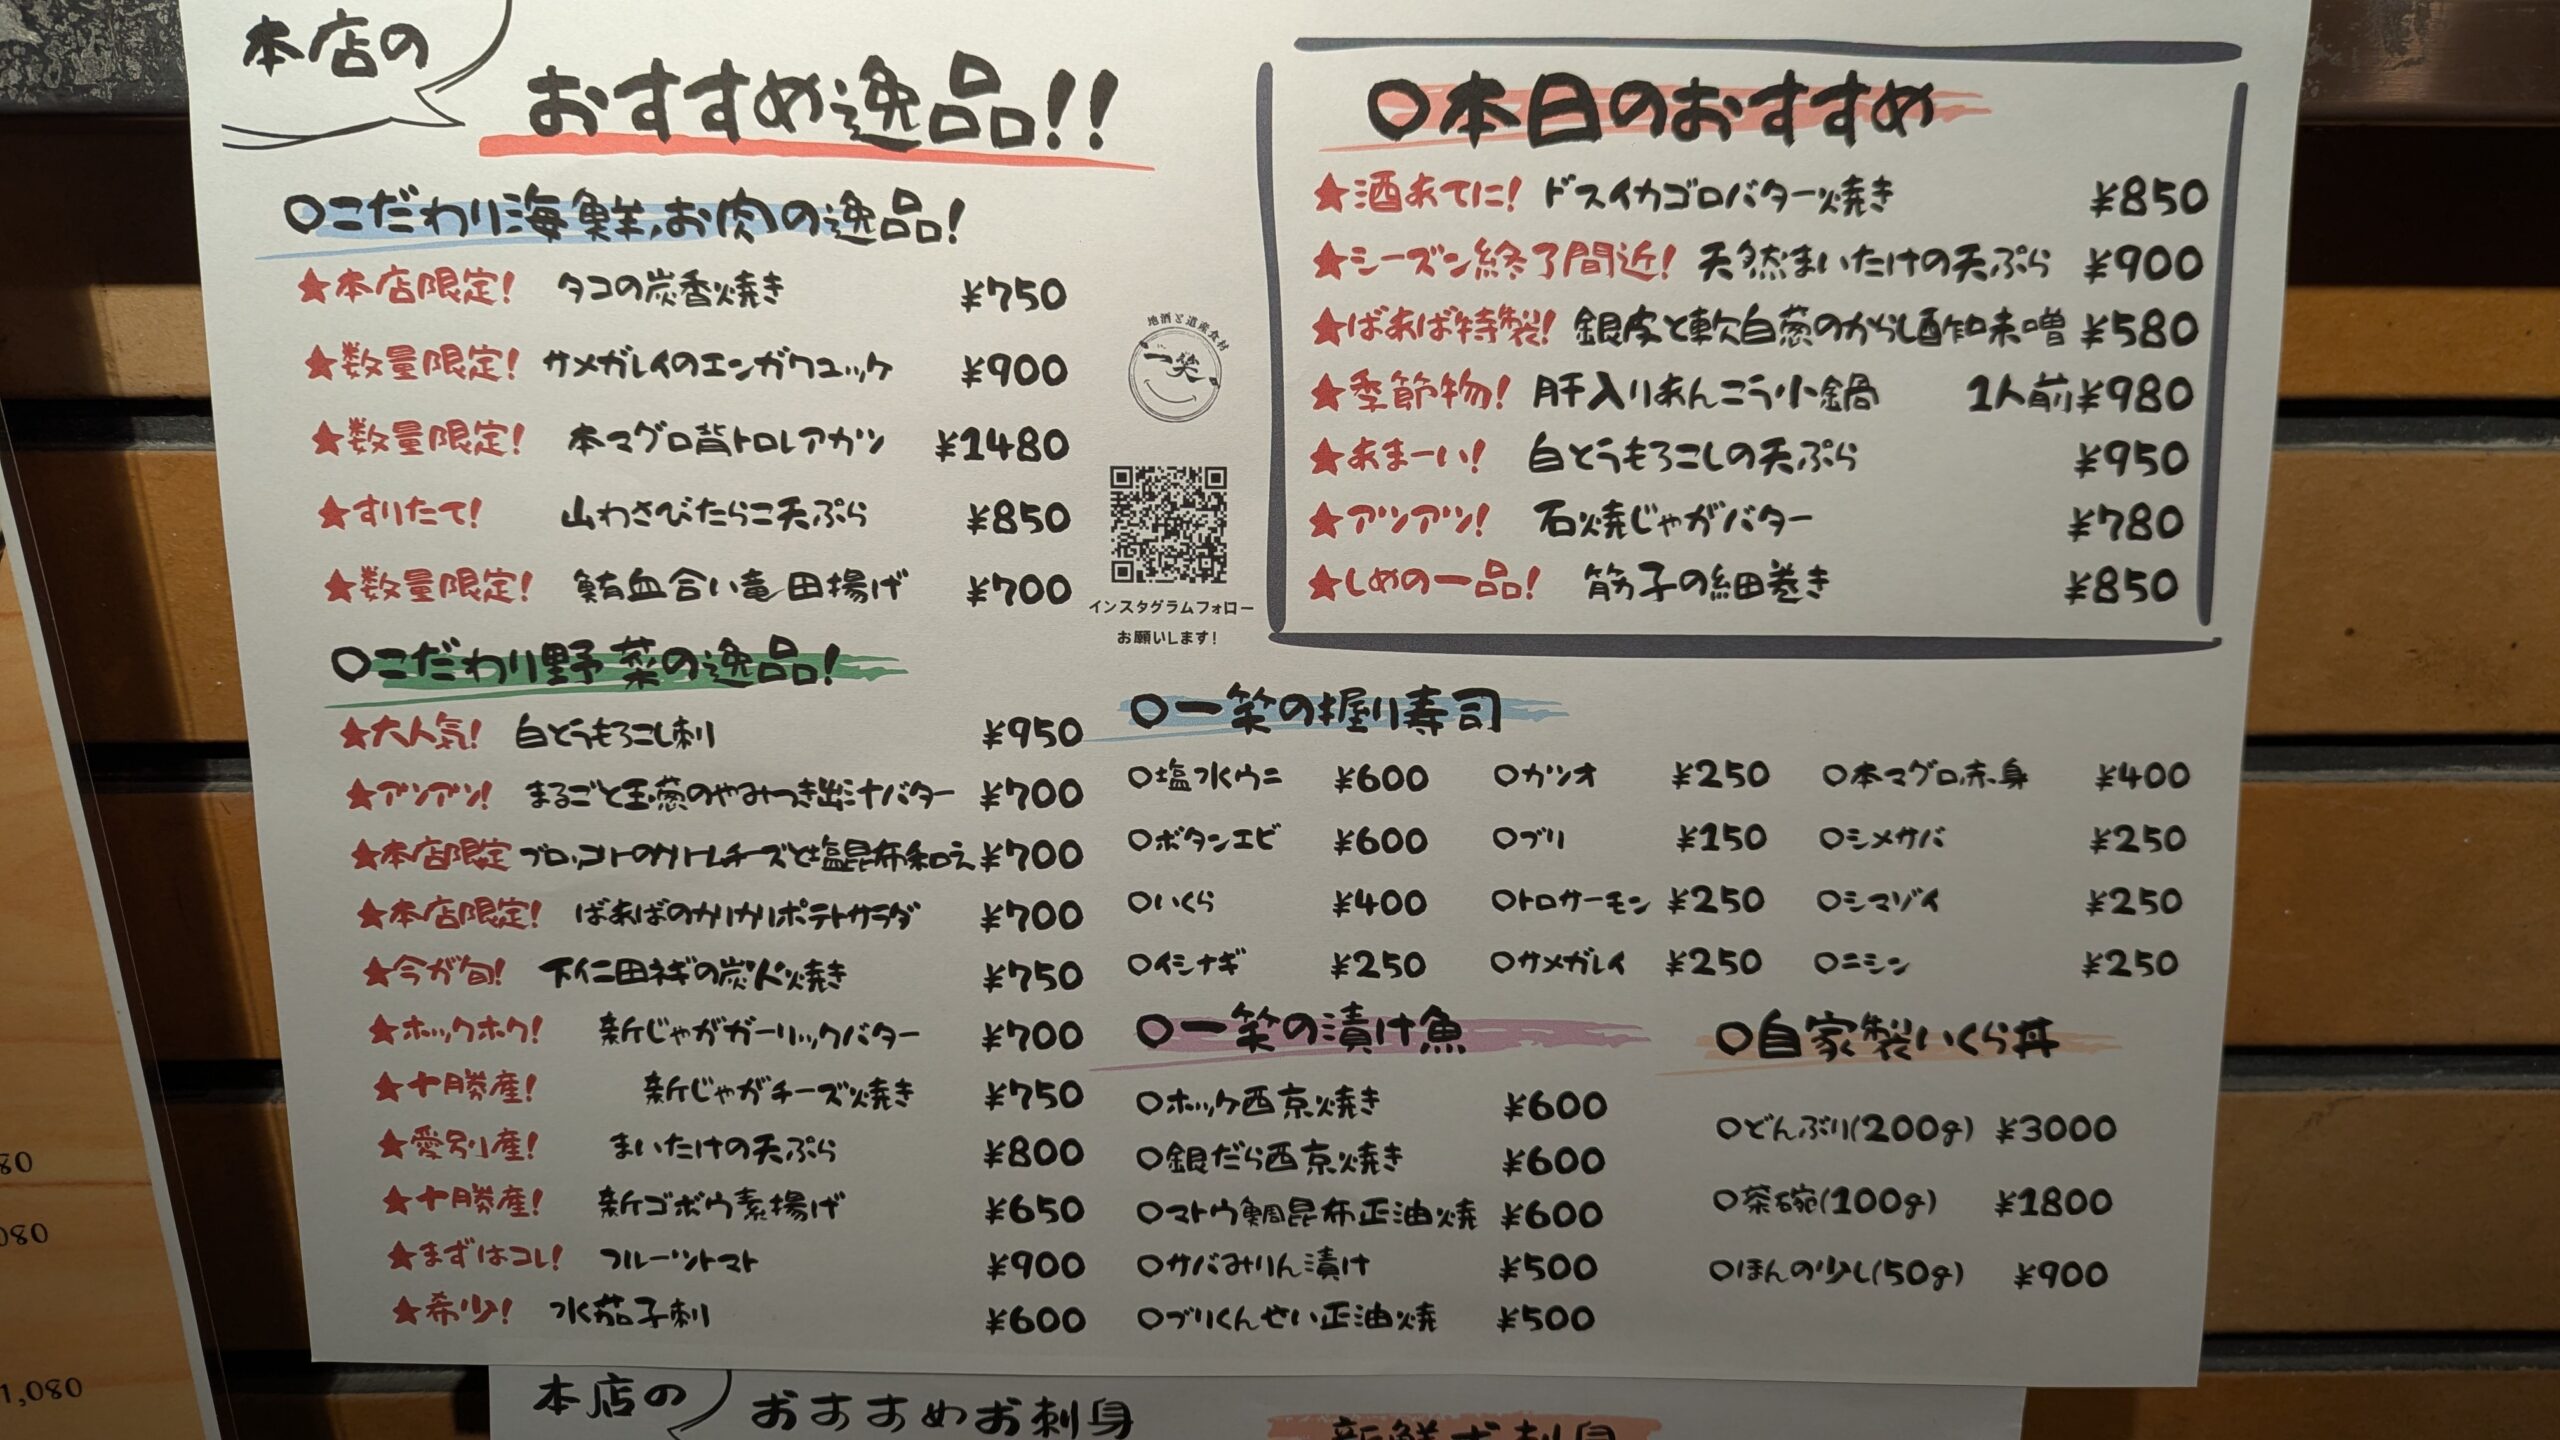 本店の
おすすめ逸品!!
○こだわり海鮮、お肉の逸品!
★本店限定! タコの炭香焼き ¥750
★数量限定! サメガレイのエンガワユッケ ¥900
★数量限定! 本マグロ背トロレアカツ ¥1480
★すりたて! 山わさびたらこ天ぷら ¥850
★数量限定! 鮪血合い竜田揚げ ¥700
○こだわり野菜の逸品!
★大人気! 白とうもろこし刺 ¥950
★アツアツ! まるごと玉葱のやみつき出汁バター ¥700
★本店限定 ブロッコリーのクリームチーズと塩昆布和え ¥700
★本店限定! ばあばのカリカリポテトサラダ ¥700
★今が旬! 下仁田ネギの炭火焼き ¥750
★ホックホク! 新じゃがガーリックバター ¥700
★十勝産! 新じゃがチーズ焼き ¥750
★愛別産! まいたけの天ぷら ¥800
★十勝産! 新ゴボウ素揚げ ¥650
★まずはコレ! フルーツトマト ¥900
★希少! 水茄子刺 ¥600
地酒と道産食材
一笑
インスタグラムフォロー
お願いします!
○本日のおすすめ
★酒あてに! ドスイカゴロバター焼き ¥850
★シーズン終了間近! 天然まいたけの天ぷら ¥900
★ばあば特製! 銀皮と軟白葱のからし酢味噌 ¥580
★季節物! 肝入りあんこう小鍋 1人前¥980
★あまーい! 白とうもろこしの天ぷら ¥950
★アツアツ! 石焼じゃがバター ¥780
★しめの一品! 筋子の細巻き ¥850
○一笑の握り寿司
○塩水ウニ ¥600 ○カツオ ¥250 ○本マグロ赤身 ¥400
○ボタンエビ ¥600 ○ブリ ¥150 ○シメサバ ¥250
○いくら ¥400 ○トロサーモン ¥250 ○シマゾイ ¥250
○イシナギ ¥250 ○サメガレイ ¥250 ○ニシン ¥250
○一笑の漬け魚
○ホッケ西京焼き ¥600
○銀だら西京焼き ¥600
○マトウ鯛昆布正油焼 ¥600
○サバみりん漬け ¥500
○ブリくんせい正油焼 ¥500
○自家製いくら丼
○どんぶり(200g) ¥3000
○茶碗(100g) ¥1800
○ほんの少し(50g) ¥900
本店の
おすすめお刺身
新鮮お刺身
1,080